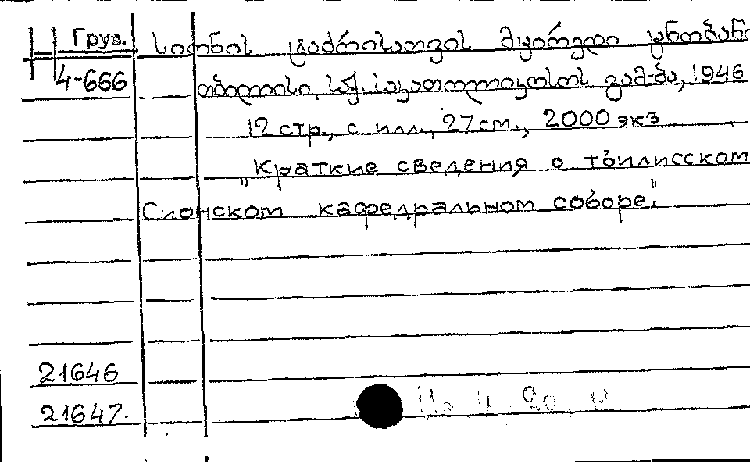 Груз. სიონის ტაძრისათვის მცირედი ცნობანი
4-666 თბილისი, საქ. საკათოლიკოსოს გამ-ბა, 1946
12 стр., с илл., 27 см., 2000 экз
"Краткие сведения о тбилисском
Сионском кафедральном соборе."
21646
21647.